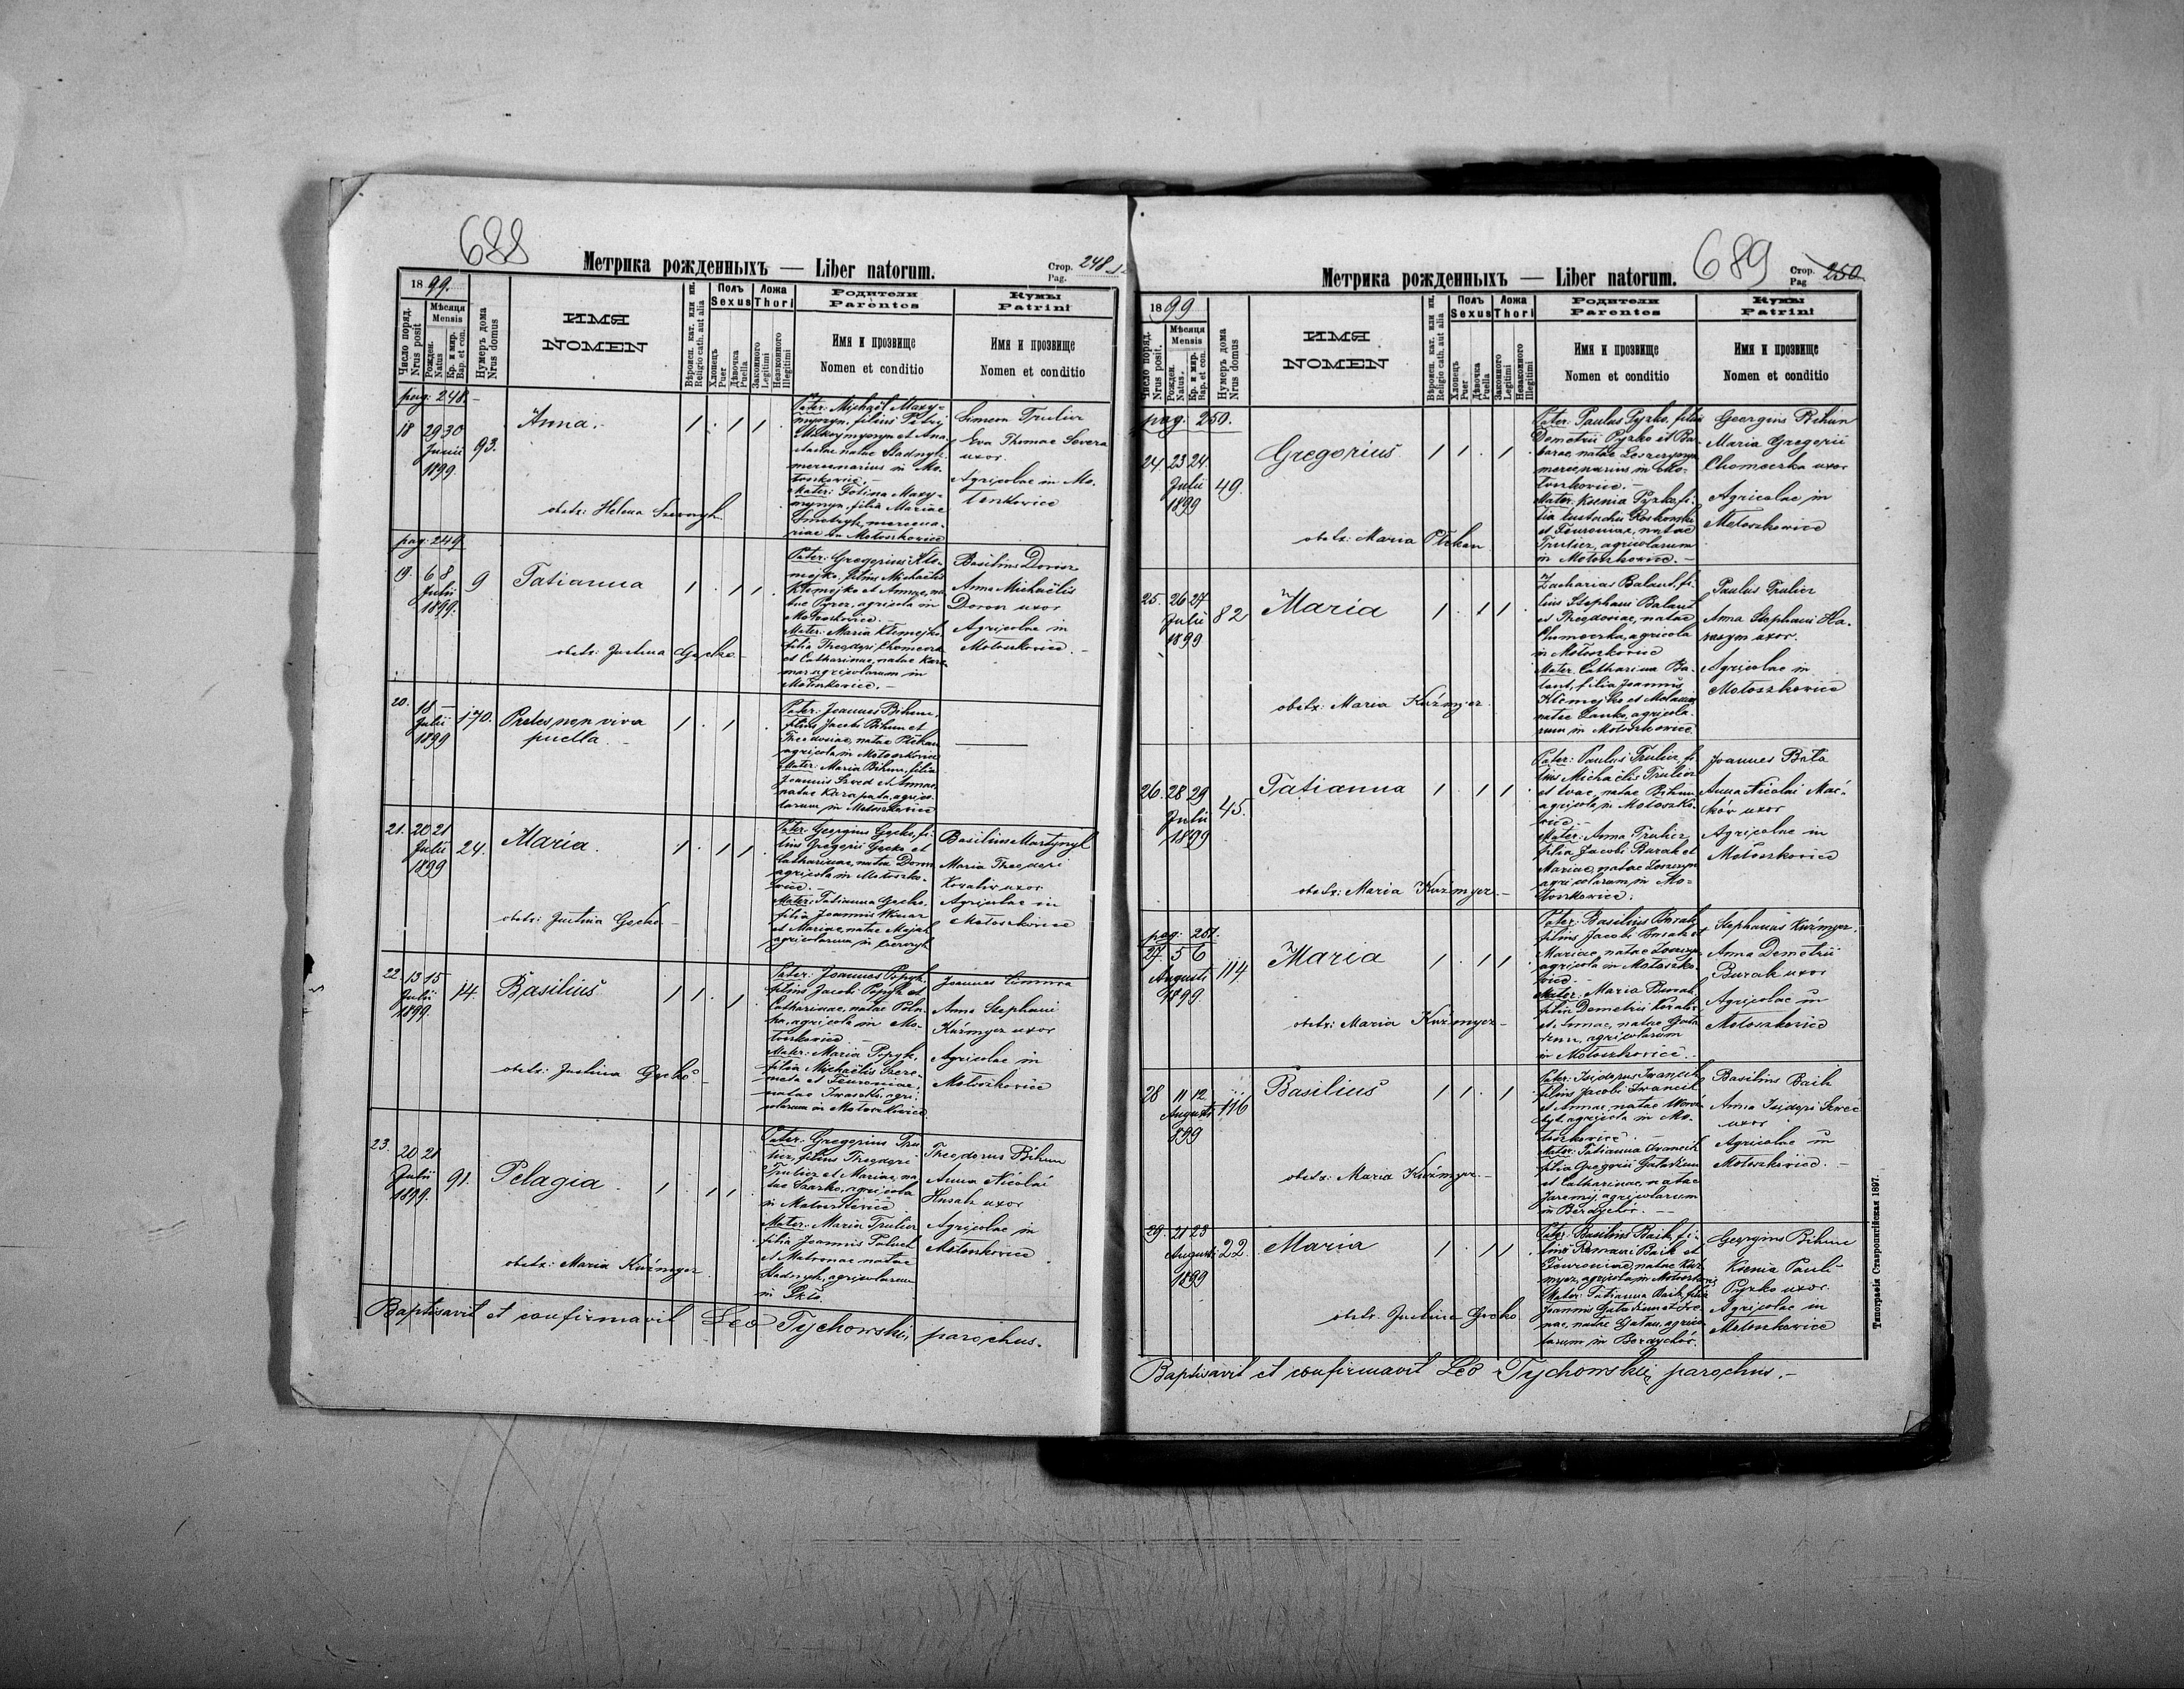 688
Метрика рожденныхъ — Liber natorum.
Стор. 248
Pag.
1899.
Число поряд.
Nrus posit
Мѣсяця
Mensis
Рожден.
Natus
Кр. и мир.
Bap. et con.
Нумеръ дома
Nrus domus
ИМЯ
NOMEN
Вѣроисп. кат. или ин.
Religio cath. aut alia
Полъ
Sexus
Хлопецъ
Puer
Дѣвочка
Puella
Ложа
Thori
Законного
Legitimi
Незаконного
Illegitimi
Родители
Parentes
Имя и прозвище
Nomen et conditio
Кумы
Patrini
Имя и прозвище
Nomen et conditio
pag: 248.
18 29 30
Junii
1899.
93.
Anna.
obstr: Helena
Pater: Michaël Maxy-
mycyn, filius Petri
natae Stadnyk
mercenarius in Mo-
łoszkowice.
Mater: Fotina Maxy-
mycyn, filia Mariae
Dmetryk, mercena-
riae in Mołoszkowice
Simeon Trulicz
Eva Thomae Severa
uxor.
Agricolae in Mo-
łoszkowice
pag: 249.
19. 6 8
Julii
1899.
9
Tatianna
obstr: Justina Gecko
Pater: Gregorius Kłe-
mejko, filius Michaëlis
Kłemejko et Annae, na-
tae Pyrez, agricola in
Mołoszkowice.
Mater: Maria Kłemejko,
filia Theodori Chomoczka
et Catharinae, natae
agricolarum in
Mołoszkowice.
Basilius Doron
Anna Michaëlis
Doron uxor
Agricolae in
Mołoszkowice.
20. 18 —
Julii
1899
170.
Proles non viva
puella.
Pater: Joannes Bihun,
filius Jacobi Bihun et
Theodosiae, natae Ptkan
agricola in Mołoszkowice
Mater: Maria Bihun, filia
Joannis Szwed et Annae,
natae Karapata, agrico-
larum in Mołoszkowice
21. 20 21
Julii
1899
24.
Maria.
obstr: Justina Gecko
Pater: Georgius Gecko, fi-
lius Gregorii Gecko et
Catharinae, natae Doron
agricola in Mołoszko-
wice.
Mater: Tatianna Gecko,
filia Joannis
et Mariae, natae
agricolarum in
Basilius Martynyk
Maria Theodori
Kowaliw uxor
Agricolae in
Mołoszkowice
22. 13 15
Julii
1899.
14.
Basilius
obstr: Justina Gecko.
Pater: Joannes Popyk,
filius Jacobi Popyk et
Catharinae, natae
agricola in Mo-
łoszkowice.
Mater: Maria Popyk,
filia Michaëlis Szere-
meta et Feuroniae,
natae agri-
colarum in Mołoszkowice
Joannes
Anna Stephani
Kuźmycz uxor
Agricolae in
Mołoszkowice
23. 20 21
Julii
1899.
91.
Pelagia
obstr: Maria Kuźmycz
Pater: Gregorius Tru-
licz, filius Theodori
Trulicz et Mariae, na-
tae agricola
in Mołoszkowice
Mater: Maria Trulicz
filia Joannis
et Matronae natae
Stadnyk, agricolarum
in Szkło.
Theodorus Bihun
Anna Nicolai
Husak uxor
Agricolae in
Mołoszkowice
Baptisavit et confirmavit Leo Tychowski, parochus.
689
Метрика рожденныхъ — Liber natorum.
Стор. 250
Pag
1899
Число поряд.
Nrus posit.
Мѣсяця
Mensis
Рожден.
Natus.
Кр. и мир.
Bap. et con.
Нумеръ дома
Nrus domus
ИМЯ
NOMEN
Вѣроисп. кат. или ин.
Religio cath. aut alia
Полъ
Sexus
Хлопецъ
Puer
Дѣвочка
Puella
Ложа
Thori
Законного
Legitimi
Незаконного
Illegitimi
Родители
Parentes
Имя и прозвище
Nomen et conditio
Кумы
Patrini
Имя и прозвище
Nomen et conditio
pag. 250.
24 23 24.
Julii
1899
49.
Gregorius
obstr: Maria Ptkan
Pater: Paulus Pyzko, filius
Demetrii Pyzko et Bar-
barae, natae
mercenarius in Mo-
łoszkowice.
Mater: Ksenia Pyzko, fi-
lia Eustachii
et Feuroniae, natae
Trulicz, agricolarum
in Mołoszkowice.
Georgius Bihun
Maria Gregorii
Chomoczka uxor
Agricolae in
Mołoszkowice
25. 26 27
Julii
1899
82
Maria
obstr: Maria Kuźmycz
Zacharias Balant, fi-
lius Stephani Balant
et Theodosiae, natae
Chomoczka, agricola
in Mołoszkowice
Mater: Catharina Ba-
lant, filia Joannis
Kłemejko et Melaniae
natae agricola-
rum in Mołoszkowice
Paulus Trulicz
Anna Stephani Ha-
rasym uxor.
Agricolae in
Mołoszkowice
26. 28 29
Julii
1899
45.
Tatianna
obstr: Maria Kuźmycz
Pater: Paulus Trulicz, fi-
lius Michaëlis Trulicz
et Evae, natae Bihun
agricola in Mołoszko-
wice.
Mater: Anna Trulicz,
filia Jacobi Burak et
Mariae, natae
agricolarum in Mo-
łoszkowice.
Joannes
Anna Nicolai
uxor
Agricolae in
Mołoszkowice
pag: 251.
27. 5 6
Augusti
1899
114
Maria
obstr: Maria Kuźmycz
Pater: Basilius Burak,
filius Jacobi Burak et
Mariae, natae
agricola in Mołoszko-
wice.
Mater: Maria Burak,
filia Demetrii
et Annae, natae
agricolarum
in Mołoszkowice.
Stephanus Kuźmycz.
Anna Demetrii
Burak uxor
Agricolae in
Mołoszkowice
28 11 12
Augusti
1899
116
Basilius
obstr: Maria Kuźmycz
Pater: Isidorus Iwancik
filius Jacobi Iwancik
et Annae, natae
agricola in Mo-
łoszkowice.
Mater: Tatianna Iwancik
filia Gregorii
et Catharinae, natae
Jaremij, agricolarum
in Berdychów.
Basilius Baik
Anna Isidori
uxor
Agricolae in
Mołoszkowice.
29. 21 23
Augusti
1899
22.
Maria
obstr. Justina Gecko
Pater: Basilius Baik, fi-
lius Romani Baik et
Feuroniae, natae Kuź-
mycz, agricola in Mołoszkowice
Mater: Tatianna Baik, filia
Joannis et Ire-
nae, natae agrico-
larum in Berdychów.
Georgius Bihun
Ksenia Pauli
Pyzko uxor.
Agricolae in
Mołoszkowice
Baptisavit et confirmavit Leo Tychowski, parochus.
Типографія Ставропигійская 1897.